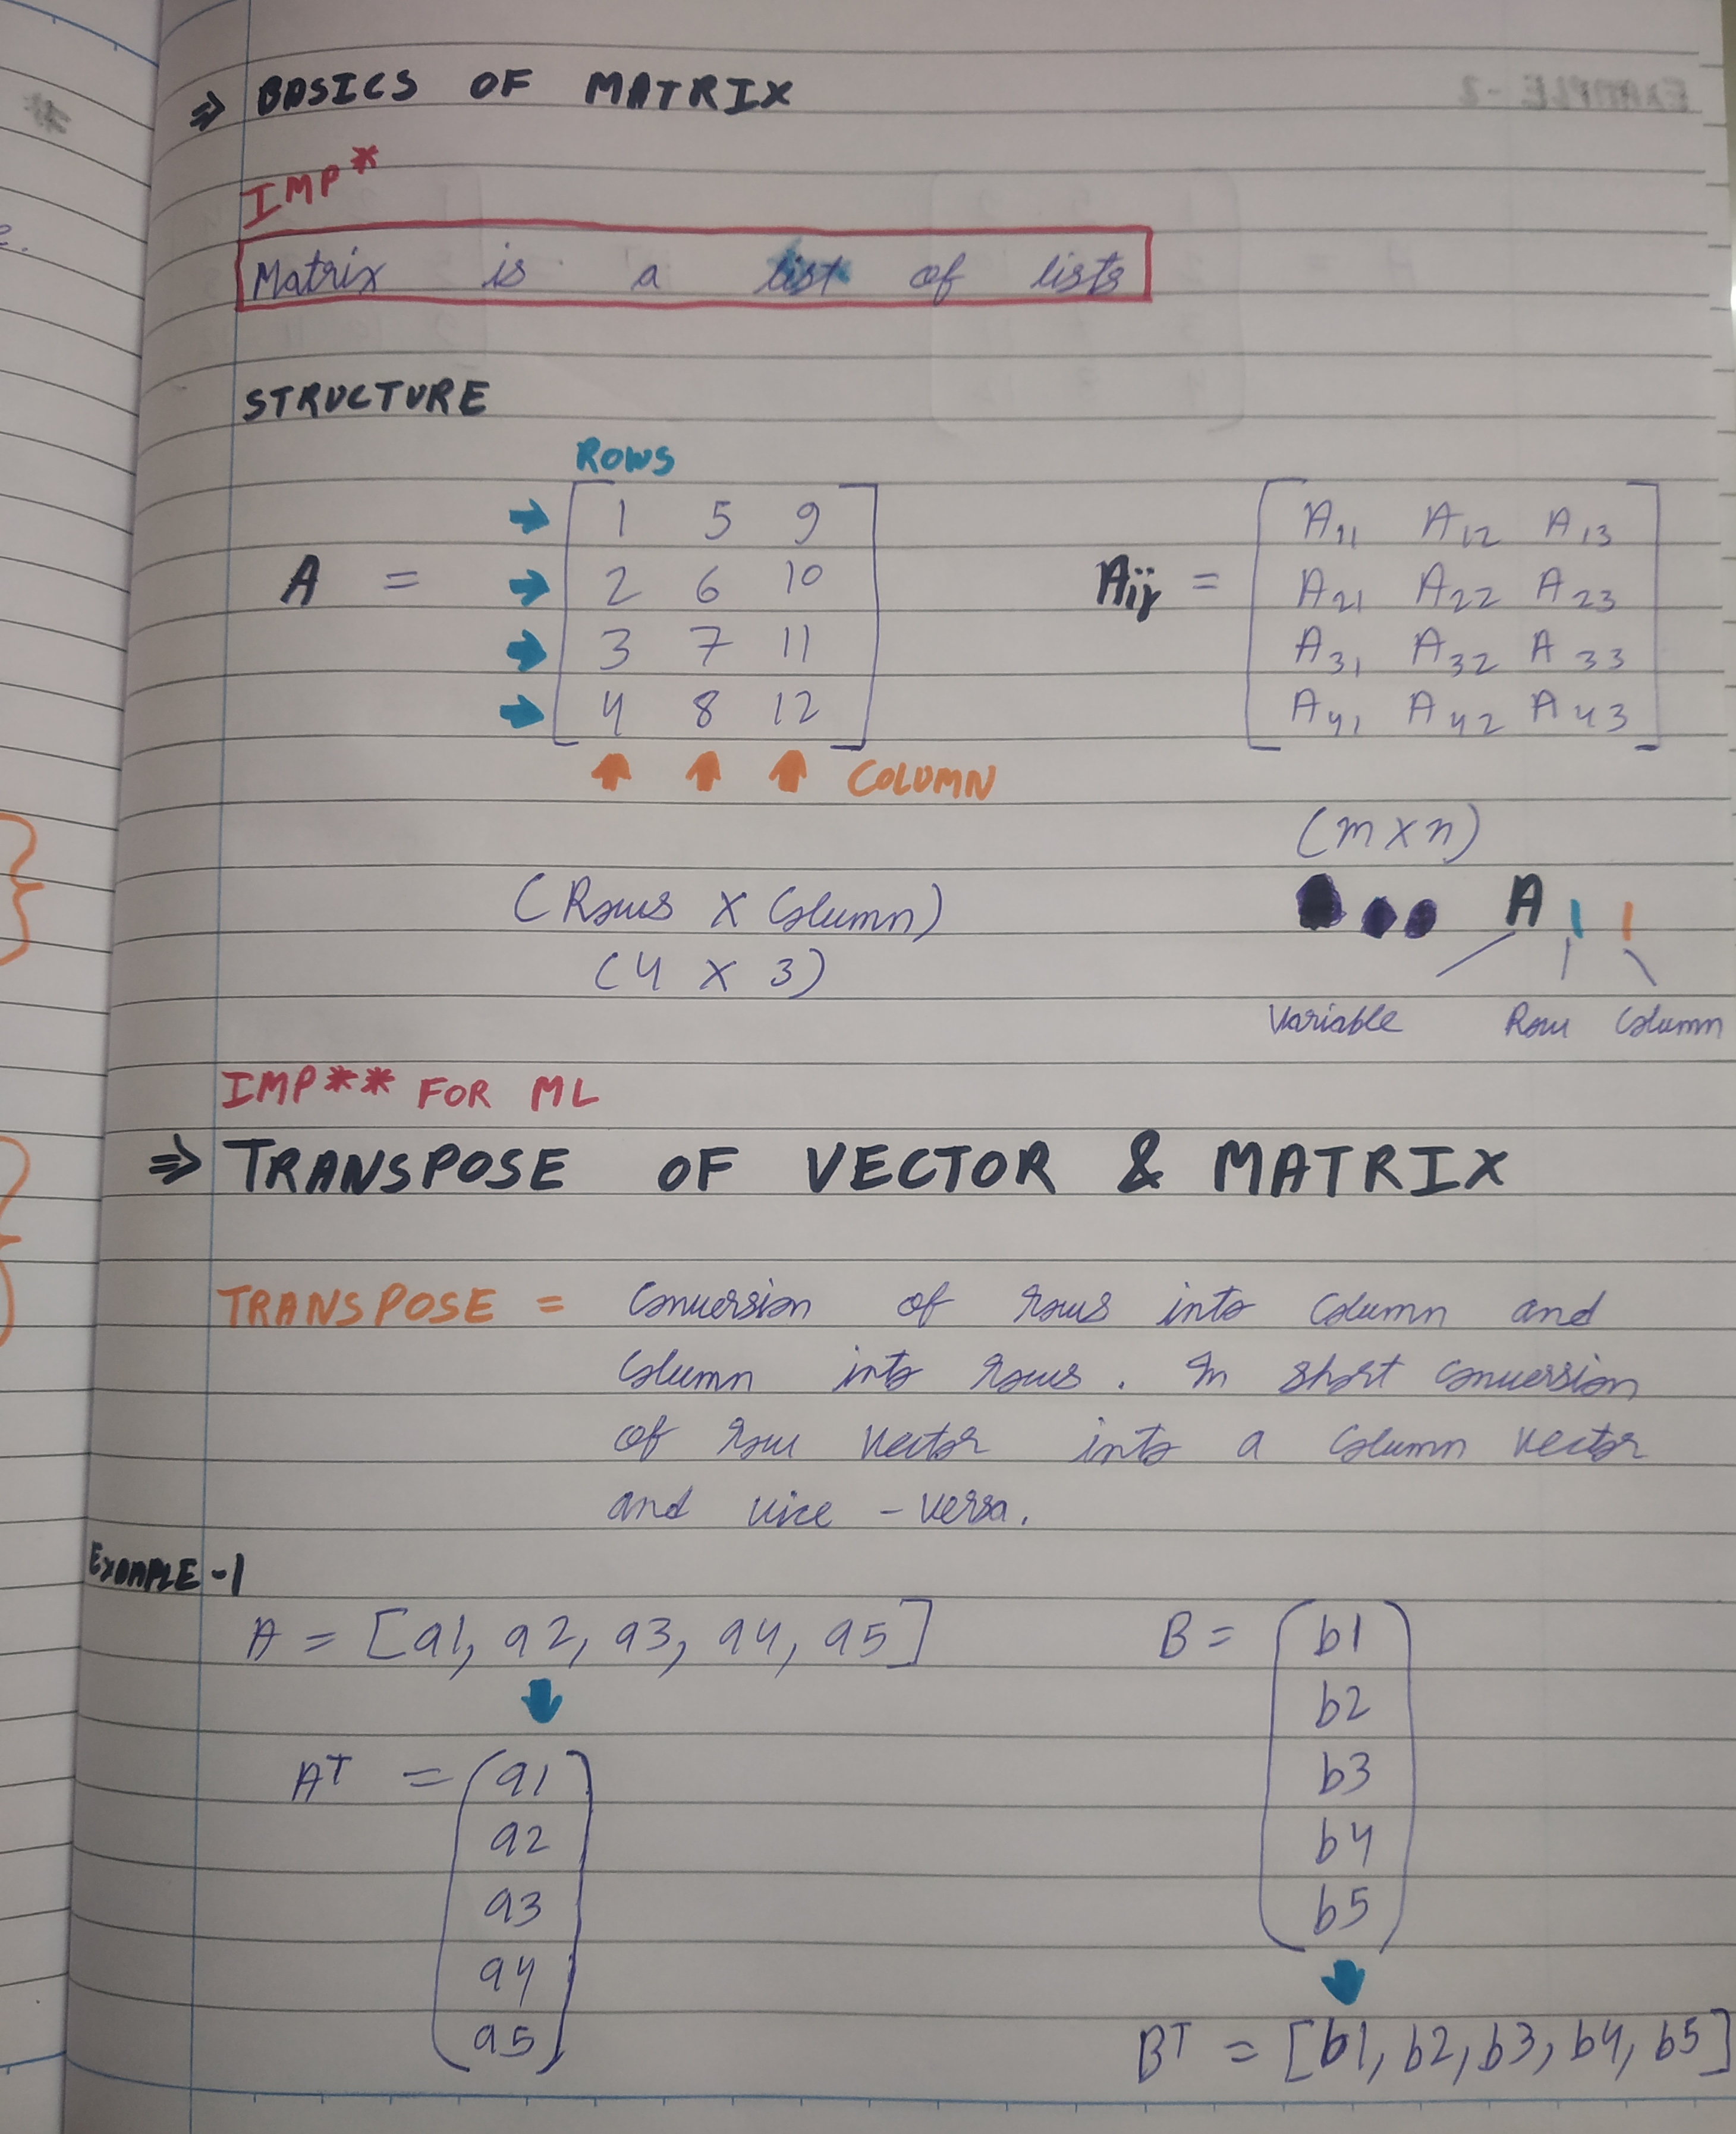 ⇒ BASICS OF MATRIX
IMP*
Matrix is a list of lists
STRUCTURE
ROWS
A =
1 5 9
2 6 10
3 7 11
4 8 12
COLUMN
(Rows X Column)
(4 X 3)
Aij =
A11 A12 A13
A21 A22 A23
A31 A32 A33
A41 A42 A43
(m x n)
A
Variable Row Column
IMP** FOR ML
⇒ TRANSPOSE OF VECTOR & MATRIX
TRANSPOSE = Conversion of rows into column and
column into rows. In short conversion
of row vector into a column vector
and vice - versa.
EXAMPLE -1
A = [a1, a2, a3, a4, a5]
AT =
a1
a2
a3
a4
a5
B =
b1
b2
b3
b4
b5
BT = [b1, b2, b3, b4, b5]